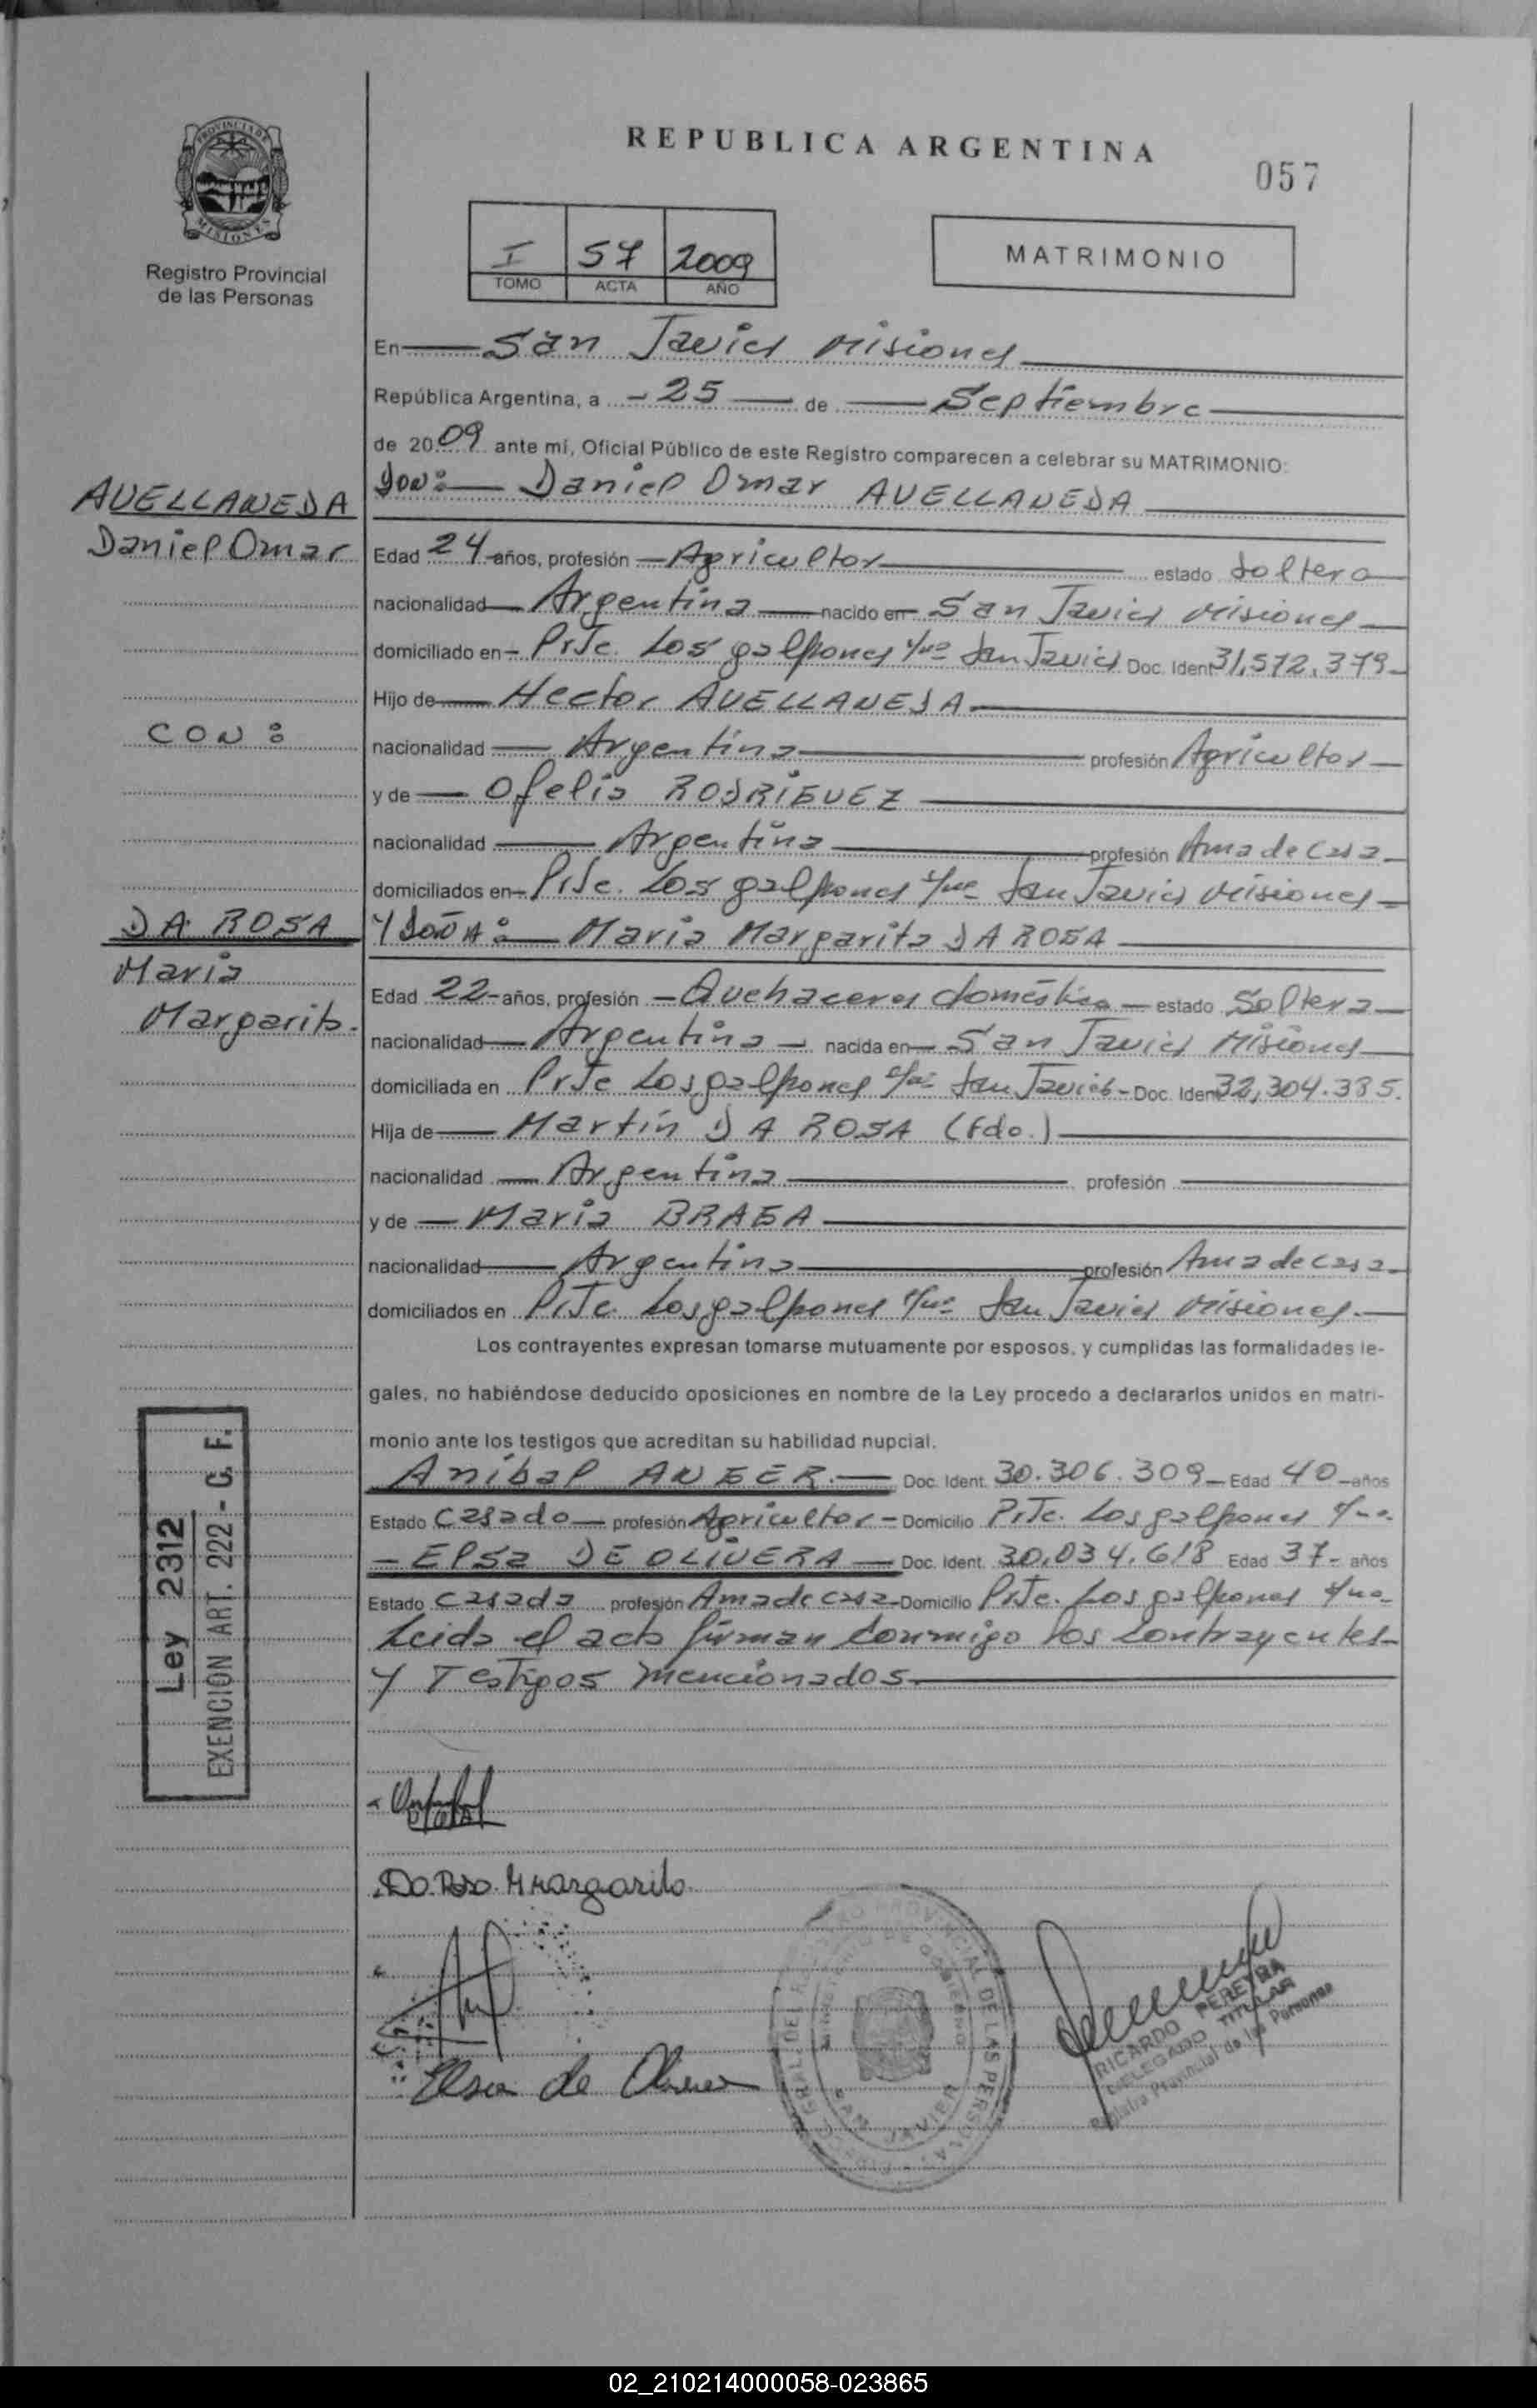 PROVINCIA DE
MISIONES
Registro Provincial
de las Personas
REPUBLICA ARGENTINA
057
I 57 2009
TOMO ACTA AÑO
MATRIMONIO
En San Javier Misiones
República Argentina, a - 25 de Septiembre
de 2009 ante mí, Oficial Público de este Registro comparecen a celebrar su MATRIMONIO:
AVELLANEDA
Don: Daniel Omar AVELLANEDA
Daniel Omar
Edad 24 años, profesión Agricultor estado Soltero
nacionalidad Argentina nacido en San Javier Misiones
domiciliado en Pje. Los galpones San Javier Doc. Ident 31,572,379
Hijo de Hector AVELLANEDA
CON:
nacionalidad Argentina profesión Agricultor
y de Ofelia RODRIGUEZ
nacionalidad Argentina profesión Ama de casa
domiciliados en Pje. Los galpones San Javier Misiones
DA ROSA
Y DOÑA: Maria Margarita DA ROSA
Maria
Margarita.
Edad 22 años, profesión Quehaceres doméstico estado Soltera
nacionalidad Argentina nacida en San Javier Misiones
domiciliada en Pje Los galpones San Javier Doc. Ident 32,304.385.
Hija de Martín DA ROSA (Fdo.)
nacionalidad Argentina profesión
y de Maria BRAGA
nacionalidad Argentina profesión Ama de casa
domiciliados en Pje. Los galpones San Javier Misiones.
Los contrayentes expresan tomarse mutuamente por esposos, y cumplidas las formalidades le-
gales, no habiéndose deducido oposiciones en nombre de la Ley procedo a declararlos unidos en matri-
monio ante los testigos que acreditan su habilidad nupcial.
Aníbal ANGER. Doc. Ident. 30.306.309 Edad 40 años
Estado Casado profesión Agricultor Domicilio Pje. Los galpones
Elsa DE OLIVERA Doc. Ident. 30,034,618 Edad 37 años
Estado Casada profesión Ama de casa Domicilio Pje. Los galpones
Leida el acta firman conmigo los contrayentes
y Testigos mencionados
Ley 2312
EXENCION ART. 222 - C. F.
Da Rosa M margarita
Elsa de Olivera
SAN JAVIER
RICARDO PEREYRA
DELEGADO TITULAR
Registro Provincial de las Personas
02_210214000058-023865